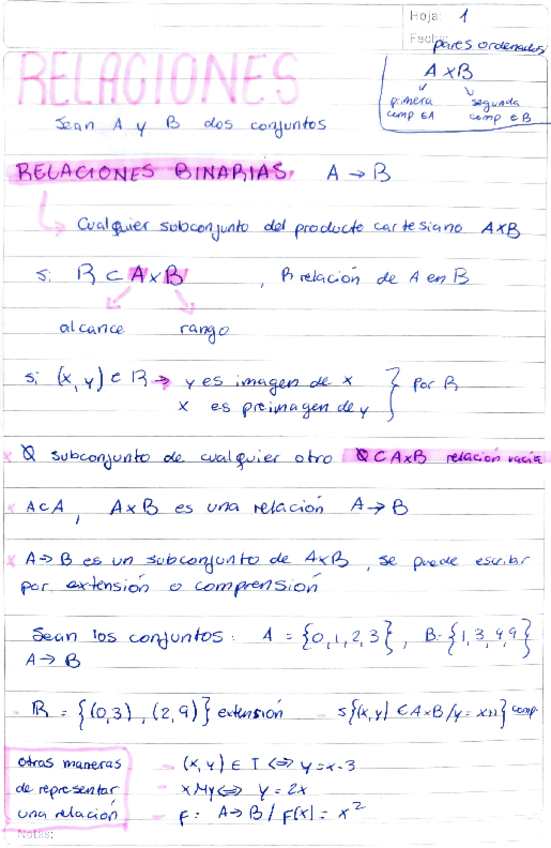 Hoja: 1
Fecha:
pares ordenados
A x B
primera segunda
comp ∈ A comp ∈ B
RELACIONES
Sean A y B dos conjuntos
RELACIONES BINARIAS, A → B
Cualquier subconjunto del producto cartesiano AxB
si R ⊂ A x B , R relación de A en B
alcance rango
si (x, y) ∈ R → y es imagen de x } por R
x es preimagen de y
x Ø subconjunto de cualquier otro Ø ⊂ AxB relación vacía
x A ⊂ A, AxB es una relación A → B
x A → B es un subconjunto de AxB, se puede escribir
por extensión o comprensión
Sean los conjuntos: A = {0,1,2,3}, B = {1,3,4,9}
A → B
- R = {(0,3), (2,9)} extensión - S{(x,y) ∈ AxB / y = x+1} comp
otras maneras - (x, y) ∈ T ⇔ y = x-3
de representar - x M y ⇔ y = 2x
una relación - F: A → B / F(x) = x²
Notas: